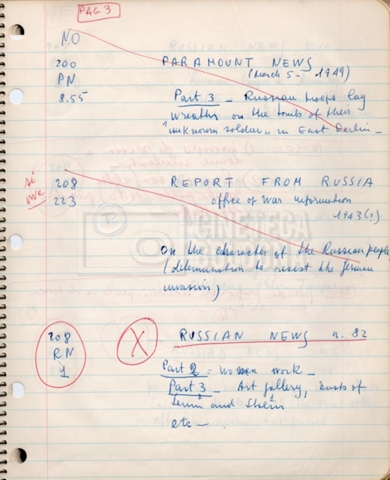 PAG 3
NO
200 PARAMOUNT NEWS
PN (March 5 - 1949)
8.55 Part 3 _ Russian troops lay
wreaths on the tombs of their
"unknown soldier" in East Berlin _
sì
208 REPORT FROM RUSSIA
223 office of war information
1943 (?)
CINETECA
on the character of the Russian people
(determination to resist the german
invasion)
208 X RUSSIAN NEWS n. 82
RN Part 2 = women work _
1 Part 3 _ Art gallery, busts of
Lenin and Stalin
etc _ .